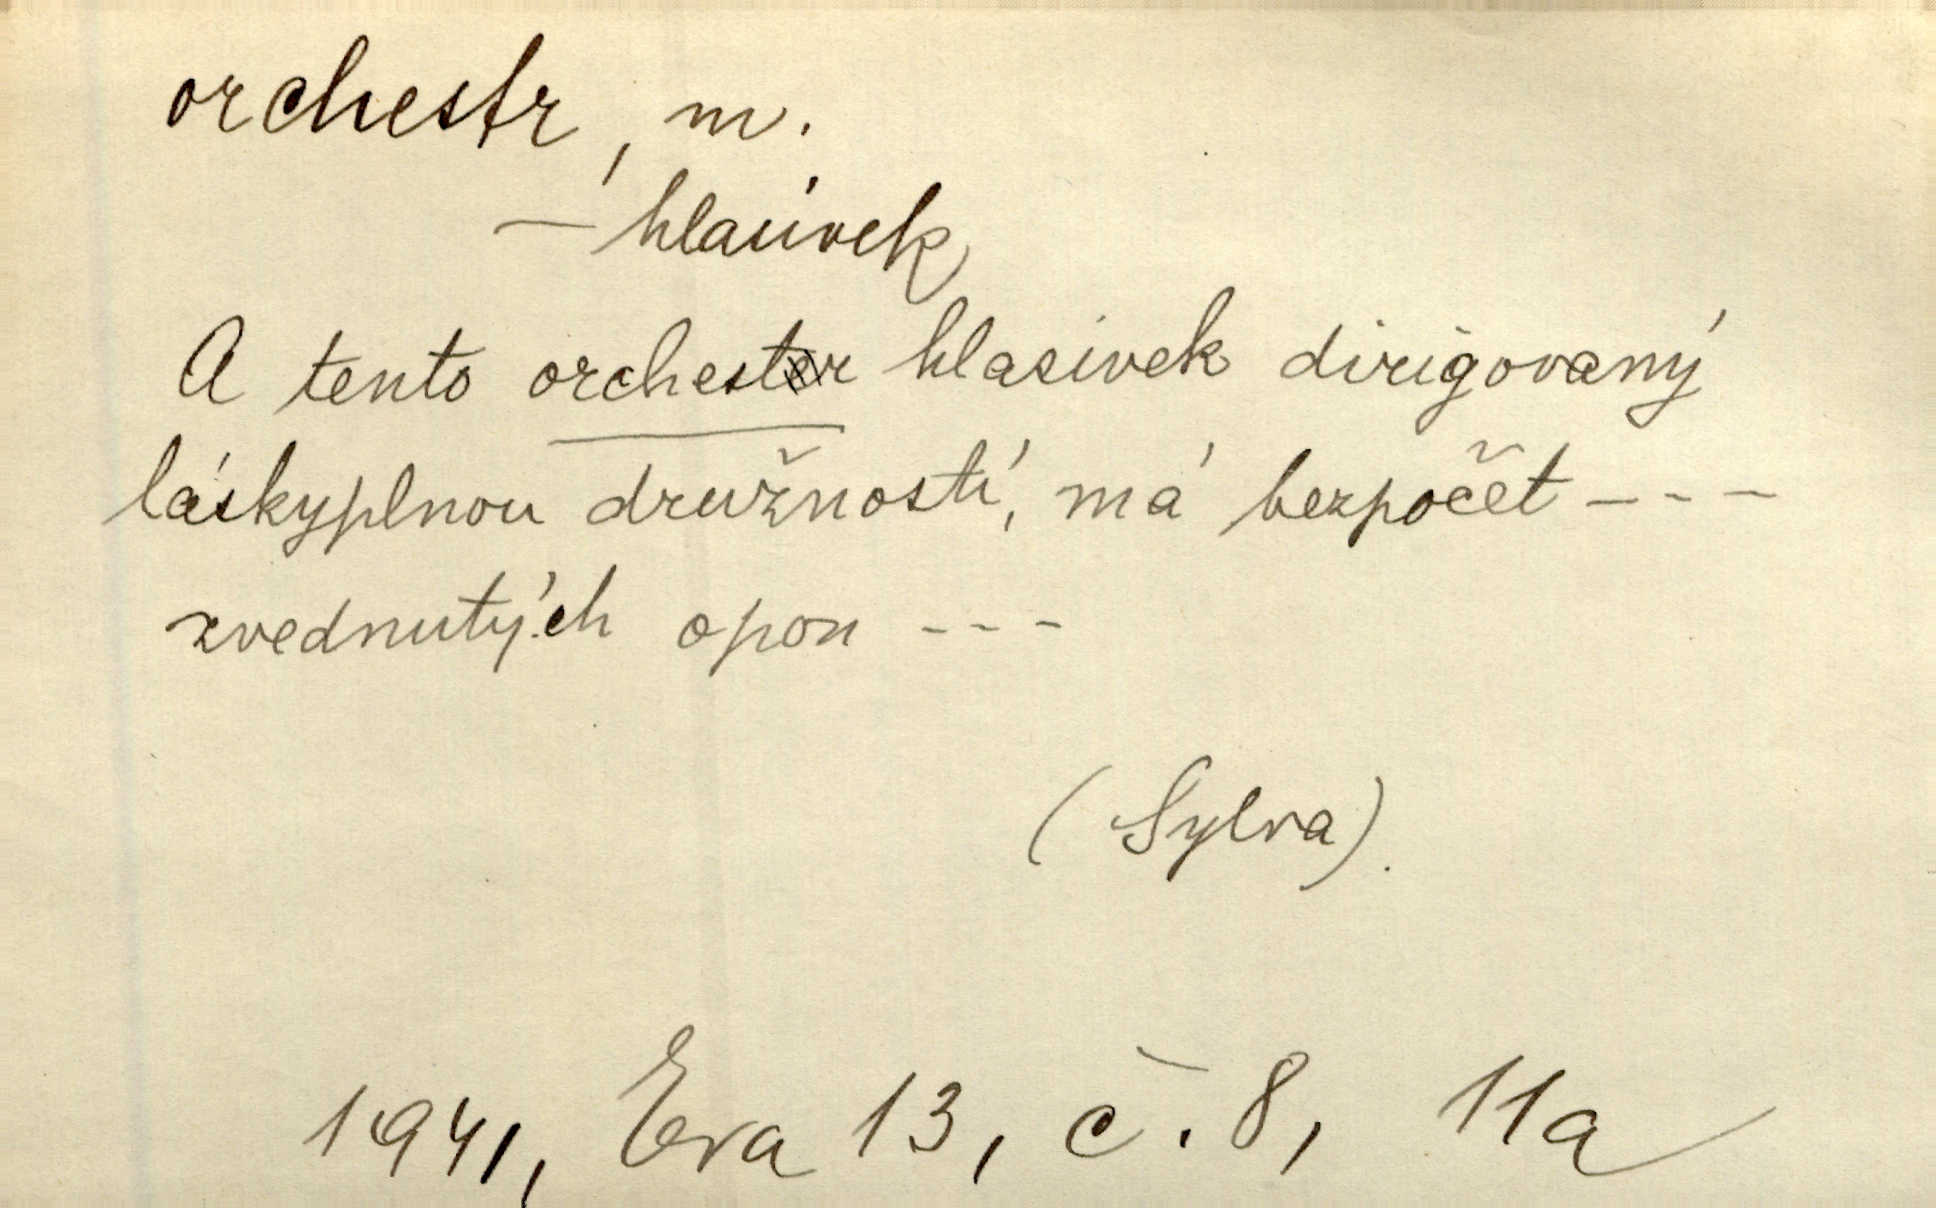 orchestr, m.
– hlasivek
A tento orchestr hlasivek dirigovaný
láskyplnou družností, má bezpočet ---
zvednutých opon ---
(Sylva).
1941, Eva 13, č. 8, 11a